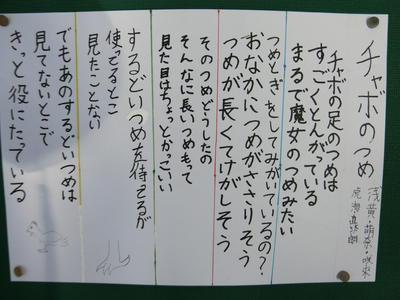 チャボのつめ
浅黄・萌奈・咲来
チャボの足のつめは
すごくとんがっている
まるで魔女のつめみたい
つめとぎをしてみがいているの？
おなかにつめがささりそう
つめが長くてけがしそう
そのつめどうしたの
そんなに長いつめもって
見た目はちょっとかっこいい
するどいつめを持ってるが
使ってるとこ
見たことない
でもあのするどいつめは
見てないとこで
きっと役にたっている